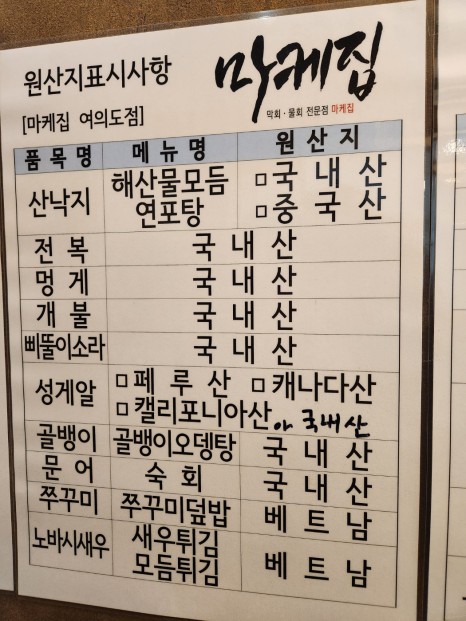 원산지표시사항
막케집
[마케집 여의도점]
막회·물회 전문점 마케집
품목명 메뉴명 원산지
산낙지 해산물모듬 연포탕 □국내산 □중국산
전복 국내산
멍게 국내산
개불 국내산
삐뚤이소라 국내산
성게알 □페루산 □캐나다산
□캘리포니아산 국내산
골뱅이 골뱅이오뎅탕 국내산
문어 숙회 국내산
쭈꾸미 쭈꾸미덮밥 베트남
노바시새우 새우튀김 모듬튀김 베트남